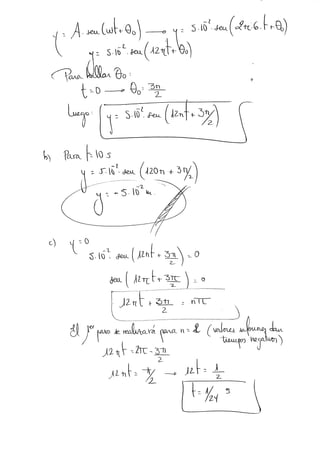 y = A. sen (wt + θ₀) → y = 5.10⁻². sen (2π.6.t + θ₀)
y = 5.10⁻². sen (12πt + θ₀)
Para hallar θ₀:
t = 0 → θ₀ = 3π/2
Luego: y = 5.10⁻². sen (12πt + 3π/2)
b) Para t = 10 s
y = 5.10⁻². sen (120π + 3π/2)
y = -5.10⁻² m
c) y = 0
5.10⁻². sen (12πt + 3π/2) = 0
sen (12πt + 3π/2) = 0
12πt + 3π/2 = nπ
El 1er paso se realizará para n = 2 (valores inferiores dan
tiempos negativos)
12πt = 2π - 3π/2
12πt = π/2 → 12t = 1/2
t = 1/24 s